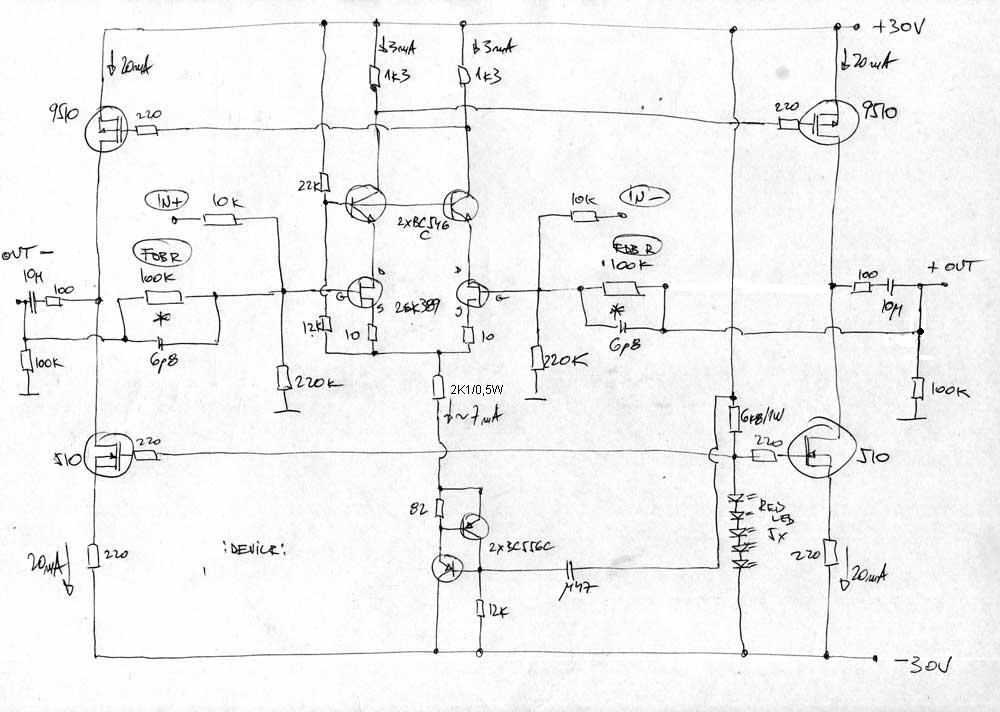 +30V
20mA
3mA
3mA
20mA
1K3
1K3
9510
220
220
9510
22K
IN+
10K
10K
IN-
2xBC546
C
OUT -
FDBR
100K
FDBR
100K
+ OUT
10µ
100
D
D
100
10µ
G
S
2SK389
S
G
*
12K
10
10
*
6p8
6p8
100K
220K
2K1/0,5W
220K
100K
~7mA
6K8/1W
510
220
220
510
82
RED
LED
5X
2xBC556C
20mA
220
:DEVICE:
µ47
220
20mA
12K
-30V